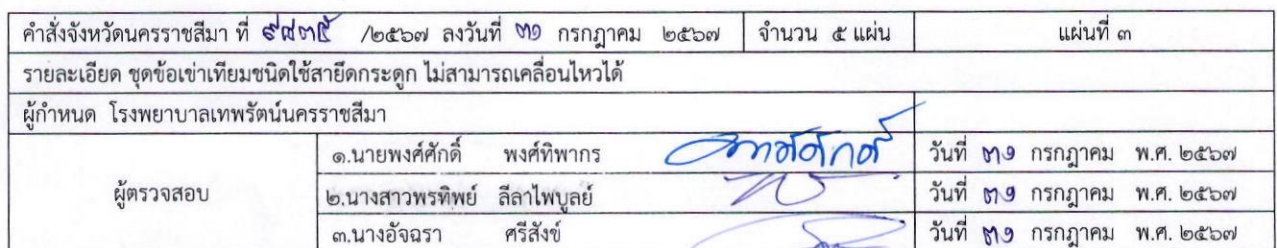 คำสั่งจังหวัดนครราชสีมา ที่ ๙๘๓๕ /๒๕๖๗ ลงวันที่ ๓๑ กรกฎาคม ๒๕๖๗ จำนวน ๕ แผ่น แผ่นที่ ๓
รายละเอียด ชุดข้อเข่าเทียมชนิดใช้สายยึดกระดูก ไม่สามารถเคลื่อนไหวได้
ผู้กำหนด โรงพยาบาลเทพรัตน์นครราชสีมา
๑.นายพงศ์ศักดิ์ พงศ์ทิพากร วันที่ ๓๑ กรกฎาคม พ.ศ. ๒๕๖๗
ผู้ตรวจสอบ ๒.นางสาวพรทิพย์ ลีลาไพบูลย์ วันที่ ๓๑ กรกฎาคม พ.ศ. ๒๕๖๗
๓.นางอัจฉรา ศรีสังข์ วันที่ ๓๑ กรกฎาคม พ.ศ. ๒๕๖๗